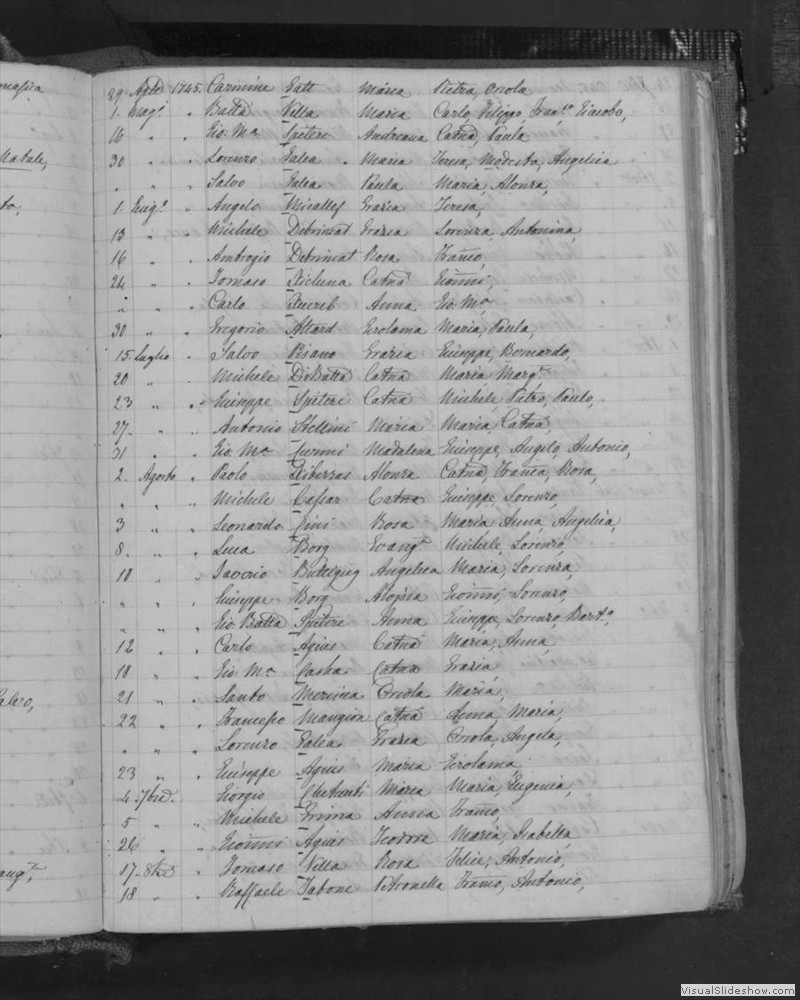 29 Aple 1745. Carmine Gatt Maria Pietra, Oriola
1. Magg. " Batta Villa Maria Carlo, Filippo, Giacobo,
16 " " Gio: Ma Spiteri Andreana Catna, Paula
30 " " Lorenzo Galea Maria Teresa, Modesta, Angelica
" " " Salvo Galea Paula Maria, Alonza,
1. Giug.o " Angelo Micallef Grazia Teresa,
13 " " Michele Debrincat Grazia Lorenza, Antonina,
16 " " Ambrogio Debrincat Rosa Franco,
24 " " Tomaso Xicluna Catna Gionni,
" " " Carlo Xuereb Anna Gio: Ma
30 " " Gregorio Attard Gerolama Maria, Paula,
15. Luglio " Salvo Pisano Grazia Giuseppe, Bernardo,
20 " " Michele DiBatta Catna Maria Marg.a
23 " " Giuseppe Spiteri Catna Michele, Pietro, Paulo,
27 " " Antonio Stellini Maria Maria, Catna,
31 " " Gio: Ma Madalena Giuseppe, Angelo, Antonio,
2. Agosto " Paolo Ribezzas Alonza Catna, Franca, Rosa,
" " " Michele Cassar Catna Giuseppe, Lorenzo,
3 " " Leonardo Cini Rosa Maria Anna, Angelica,
8. " " Luca Borg Evang.a Michele, Lorenzo,
10 " " Saverio Buttigieg Angelica Maria, Lorenza,
" " " Giuseppe Borg Aloysia Gionni, Lorenzo,
" " " Gio Batta Spiteri Anna Giuseppe, Lorenzo, Bart.o,
12 " " Carlo Agius Catna Maria, Anna,
18 " " Gio: Ma Pasha Catna Grazia
21 " " Santo Mercieca Oriola Maria,
22 " " Francesco Mangion Catna Anna, Maria,
" " " Lorenzo Galea Grazia Oriola, Angela,
23 " " Giuseppe Agius Maria Gerolama
4 7bre. " Giorgio Chetcuti Maria Maria, Eugenia,
5 " " Michele Grima Anna Franco,
26 " " Gionni Agius Teodora Maria, Isabella,
17. 8bre " Tomaso Villa Rosa Felice, Antonio,
18 " " Raffaele Tabone Petronella Franco, Antonio,
VisualSlideshow.com